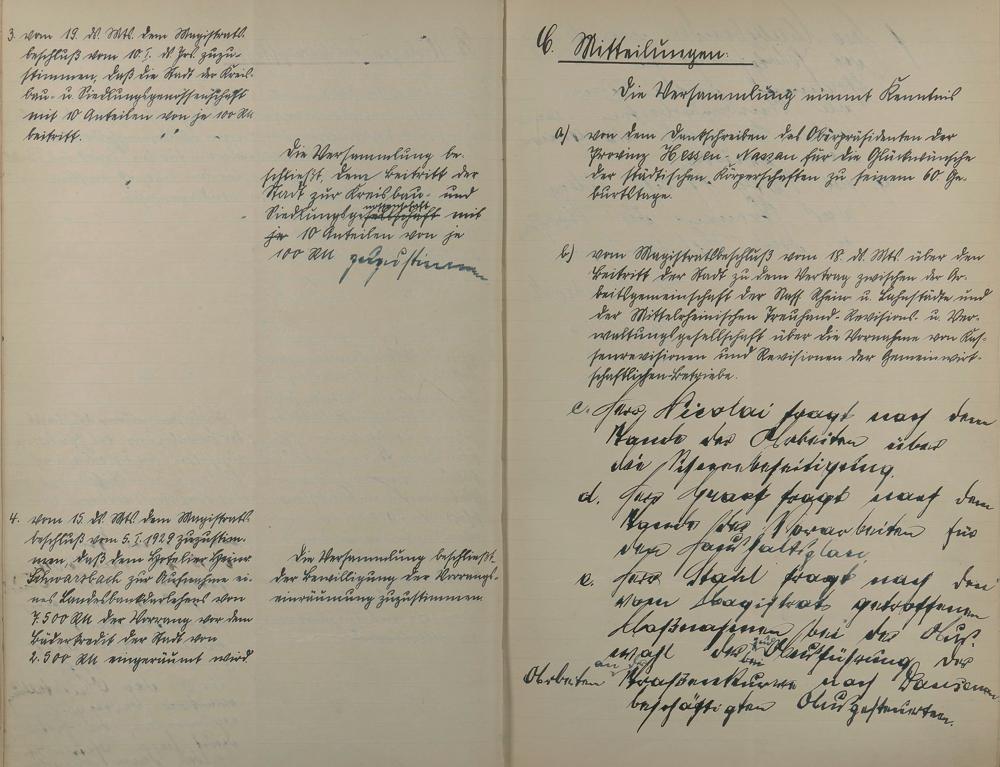 3. vom 19. ds. Mts. dem Magistrats-
beschluß vom 10. I. ds. Jrs. zuzu-
stimmen, daß die Stadt der Kreis-
bau- u. Siedlungsgenossenschaft
mit 10 Anteilen von je 100 RM
beitritt.
Die Versammlung be-
schließt, dem Beitritt der
Stadt zur Kreisbau- und
Siedlungsgenossenschaft mit
je 10 Anteilen von je
100 RM zuzustimmen
4. vom 15. ds. Mts. dem Magistrats-
beschluß vom 5. I. 1929 zuzustim-
men, daß dem Hotelier Heinr.
Schwarzbach zur Aufnahme ei-
nes Landesbankdarlehens von
7.500 RM der Vorrang vor dem
Bäderkredit der Stadt von
2.500 RM eingeräumt wird
Die Versammlung beschließt,
der Bewilligung der Vorrangs-
einräumung zuzustimmen.
C. Mitteilungen.
Die Versammlung nimmt Kenntnis
a) von dem Dankschreiben des Oberpräsidenten der
Provinz Hessen-Nassau für die Glückwünsche
der städtischen Körperschaften zu seinem 60 Ge-
burtstage.
b) vom Magistratsbeschluß vom 18. ds. Mts über den
Beitritt der Stadt zu dem Vertrag zwischen der Ar-
beitsgemeinschaft der Rhein u. Lahnstädte und
der Mittelrheinischen Treuhand- Revisions- u. Ver-
waltungsgesellschaft über die Vornahme von Kas-
senrevisionen und Revisionen der Gemeinwirt-
schaftlichen Betriebe.
c. Herr Nicolai fragt nach dem
Stande der Arbeiten über
die
d. Herr Graef fragt nach dem
Stande der Vorarbeiten für
den Haushaltsplan
e. Herr Stahl fragt nach den
vom Magistrat getroffenen
Maßnahmen bei der Aus-
wahl der bei Ausführung der
Arbeiten an der Straßenkurve nach Dausenau
beschäftigten Ausgesteuerten.